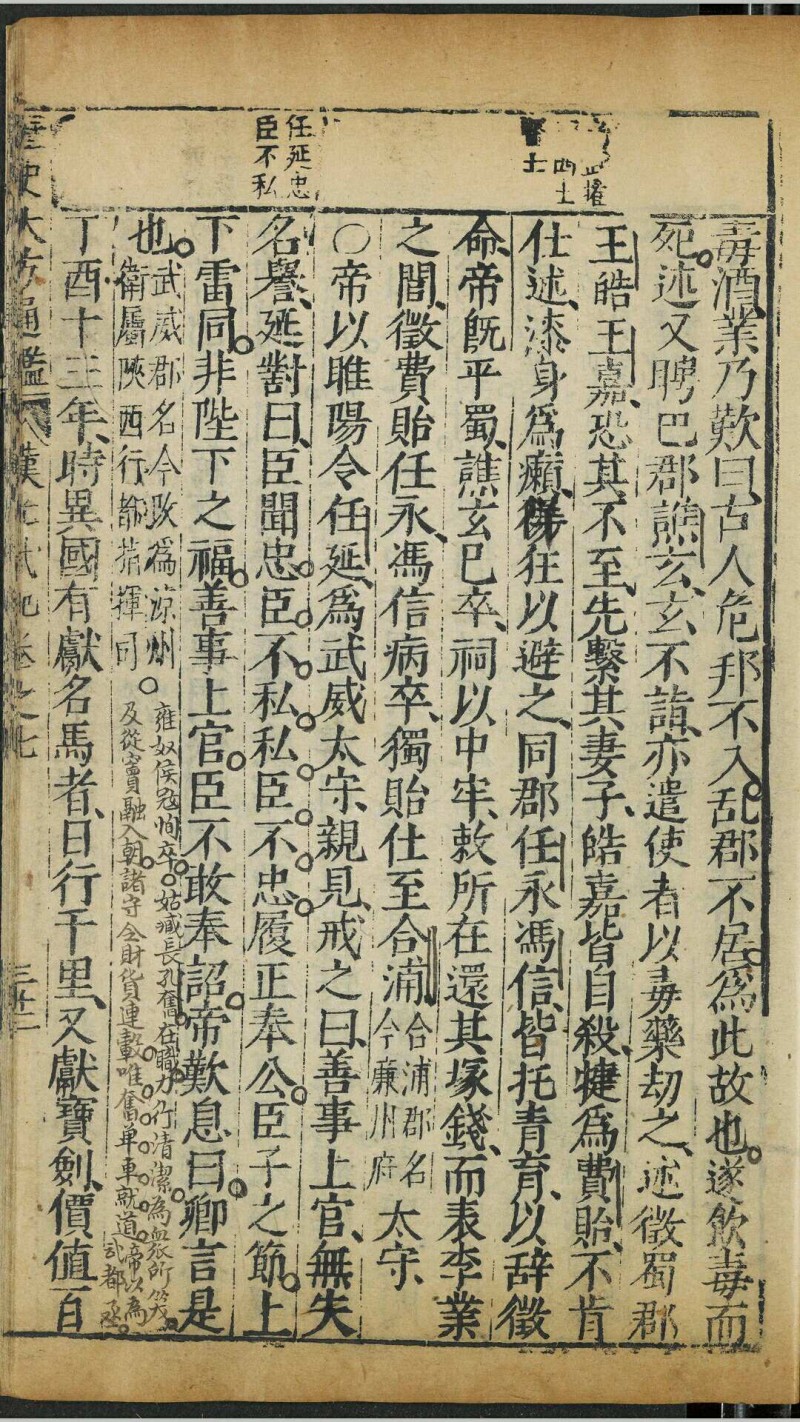 毒酒業乃歎曰古人危邦不入乱郡不居為此故也遂飲毒而
死述又聘巴郡譙玄玄不詣亦遣使者以毒藥劫之述徵蜀郡
王皓王嘉恐其不至先繫其妻子皓嘉皆自殺犍為費貽不肯
仕述漆身為癩佯狂以避之同郡任永馮信皆托青盲以辞徵
命帝既平蜀譙玄已卒祠以中牢敕所在還其塚錢而表李業
之閭徵費貽任永馮信病卒獨貽仕至合浦
合浦郡名
今亷州府
太守
○帝以睢陽令任延為武威太守親見戒之曰善事上官無失
任延忠
臣不私
名譽延對曰臣聞忠臣不私私臣不忠履正奉公臣子之節上
下雷同非陛下之福善事上官臣不敢奉詔帝歎息曰卿言是
也
武威郡名今改為涼州
衛屬陝西行都指揮司
○雍奴侯寇恂卒○姑臧長孔奮在職力行清潔為衆所笑
及從竇融入朝諸守令財貨連轂唯奮单車就道帝以為
武都丞
丁酉十三年時異國有獻名馬者日行千里又獻寶劍價值百